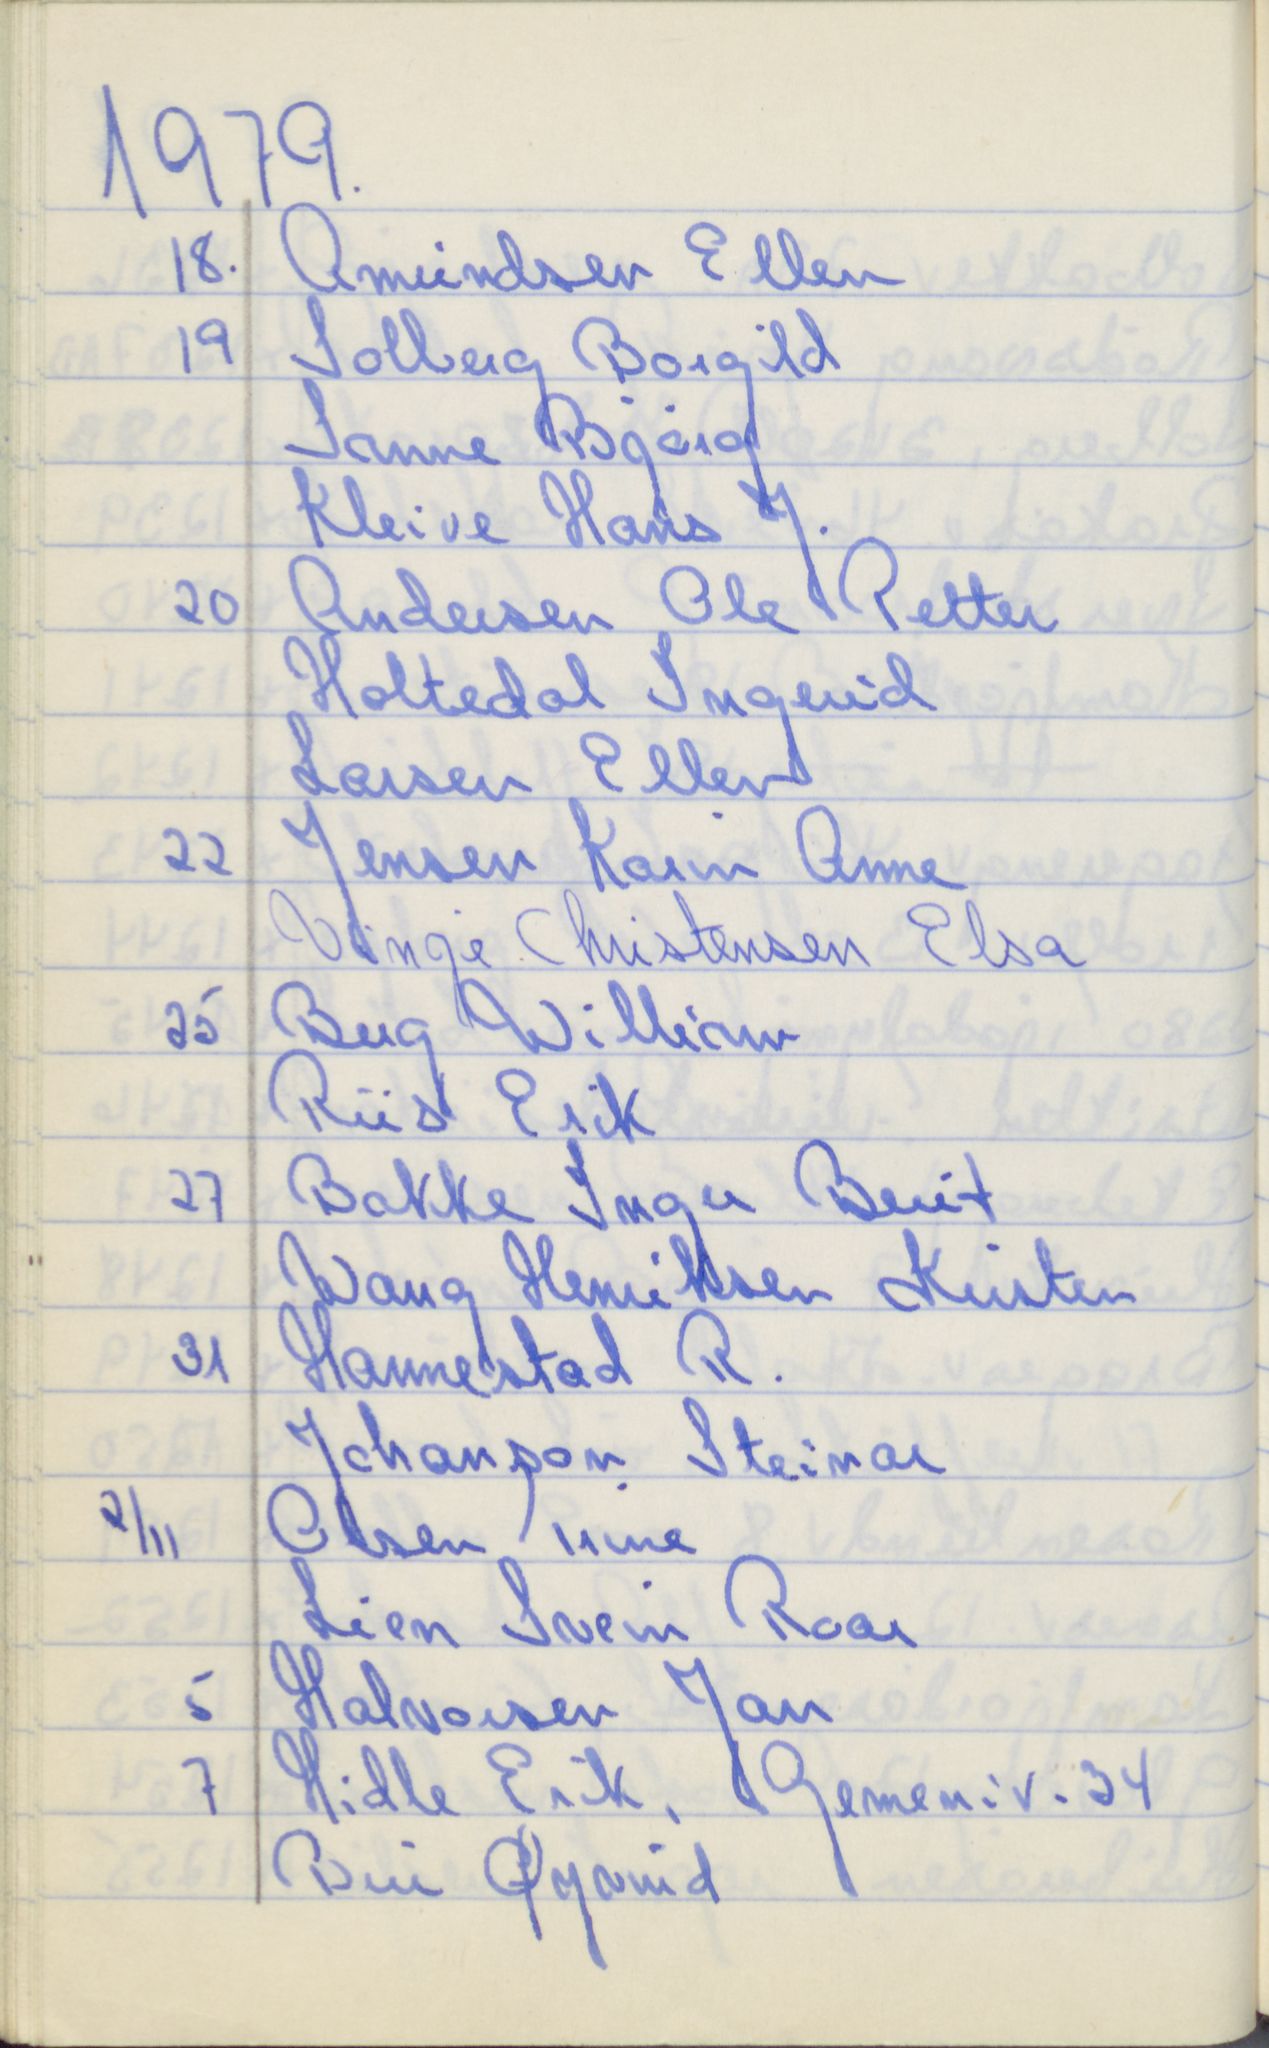 1979.
18. Amundsen Ellen
19 Solberg Borgild
Sanne Bjørg
Kleive Hans J.
20 Andersen Ole Petter
Holtedal Ingerid
Larsen Ellen
22 Jensen Karin Anne
Vinje Christensen Elsa
25 Berg William
Riis Erik
27 Bakke Inger Berit
Wang Henriksen Kirsten
31 Hannestad R.
Johanson Steinar
2/11 Olsen
Lien Svein Roar
5 Halvorsen Jan
7 Hidle Erik, 34
Øyvind